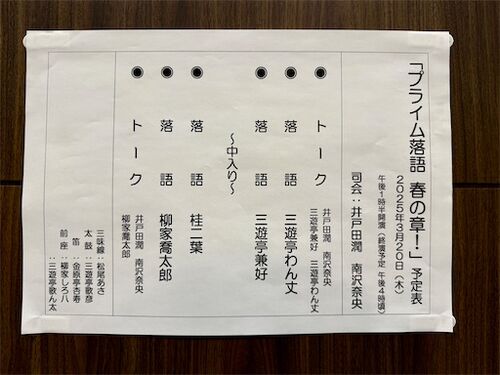 「プライム落語 春の章！」予定表
2025年3月20日（木）
午後1時半開演（終演予定 午後4時頃）
司会：井戸田潤 南沢奈央
◉ トーク 井戸田潤 南沢奈央
三遊亭兼好 三遊亭わん丈
◉ 落語 三遊亭わん丈
◉ 落語 三遊亭兼好
～中入り～
◉ 落語 桂二葉
◉ 落語 柳家喬太郎
◉ トーク 井戸田潤 南沢奈央
柳家喬太郎
三味線：松尾あさ
太鼓：三遊亭歌彦
笛：金原亭杏寿
前座：柳家しろ八
：三遊亭歌ん太